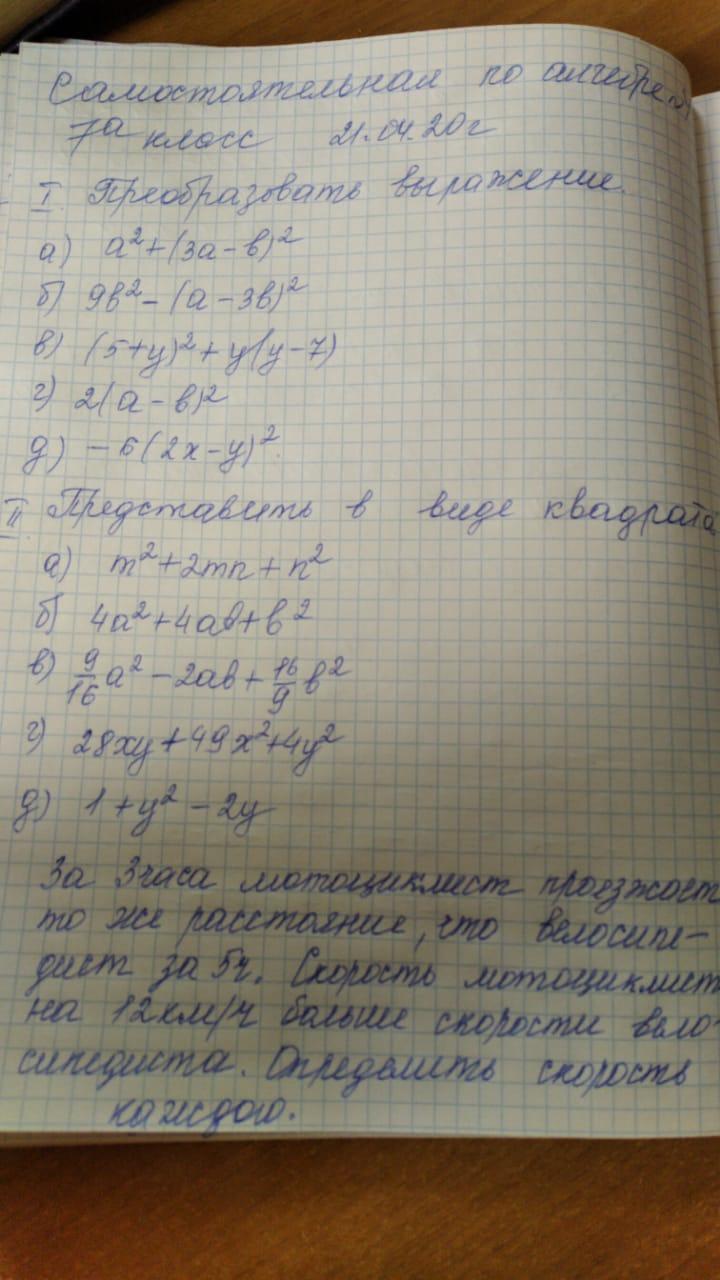 Самостоятельная по алгебре
7а класс 21.04.20г
I. Преобразовать выражение.
а) a²+(3a-b)²
б) 9b²-(a-3b)²
в) (5+y)²+y(y-7)
г) 2(a-b)²
д) -6(2x-y)².
II Представить в виде квадрата
а) m²+2mn+n²
б) 4a²+4ab+b²
в) 9/16a²-2ab+16/9b²
г) 28xy+49x²+4y²
д) 1+y²-2y
За 3часа мотоциклист проезжает
то же расстояние, что велосипе-
дист за 5ч. Скорость мотоциклист
на 12км/ч больше скорости вело-
сипедиста. Определить скорость
каждого.